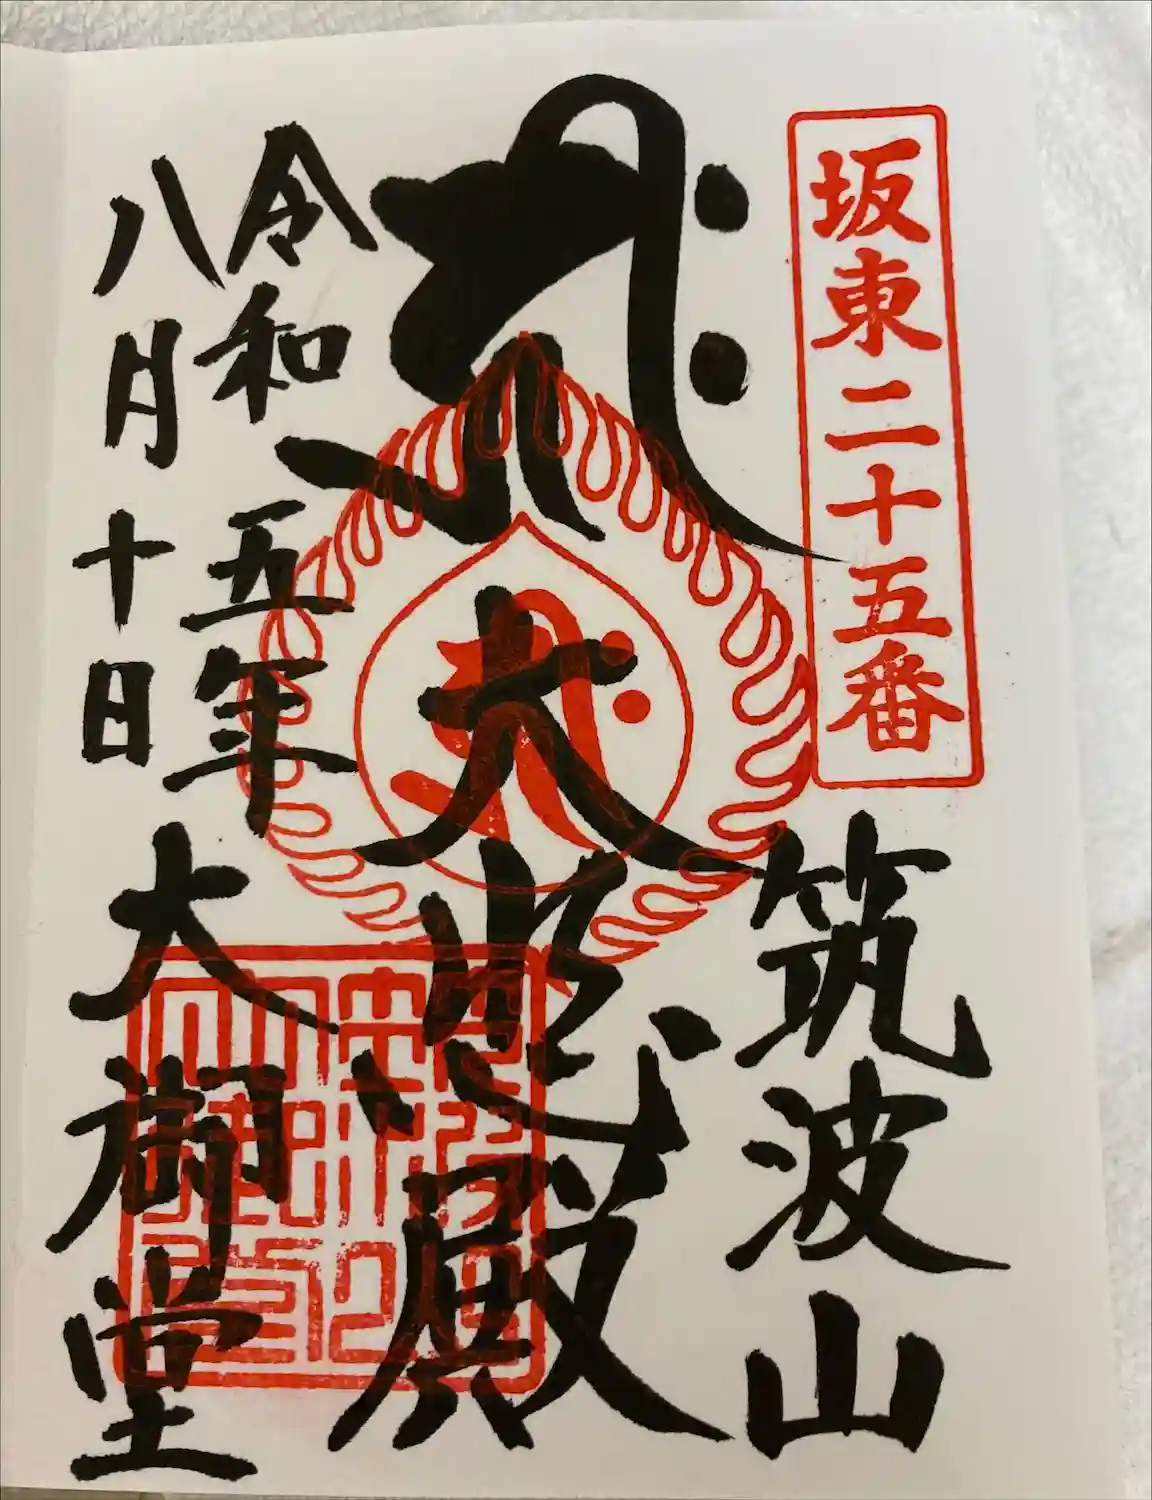 坂東二十五番
筑波山
大悲殿
令和五年
八月十日
大御堂